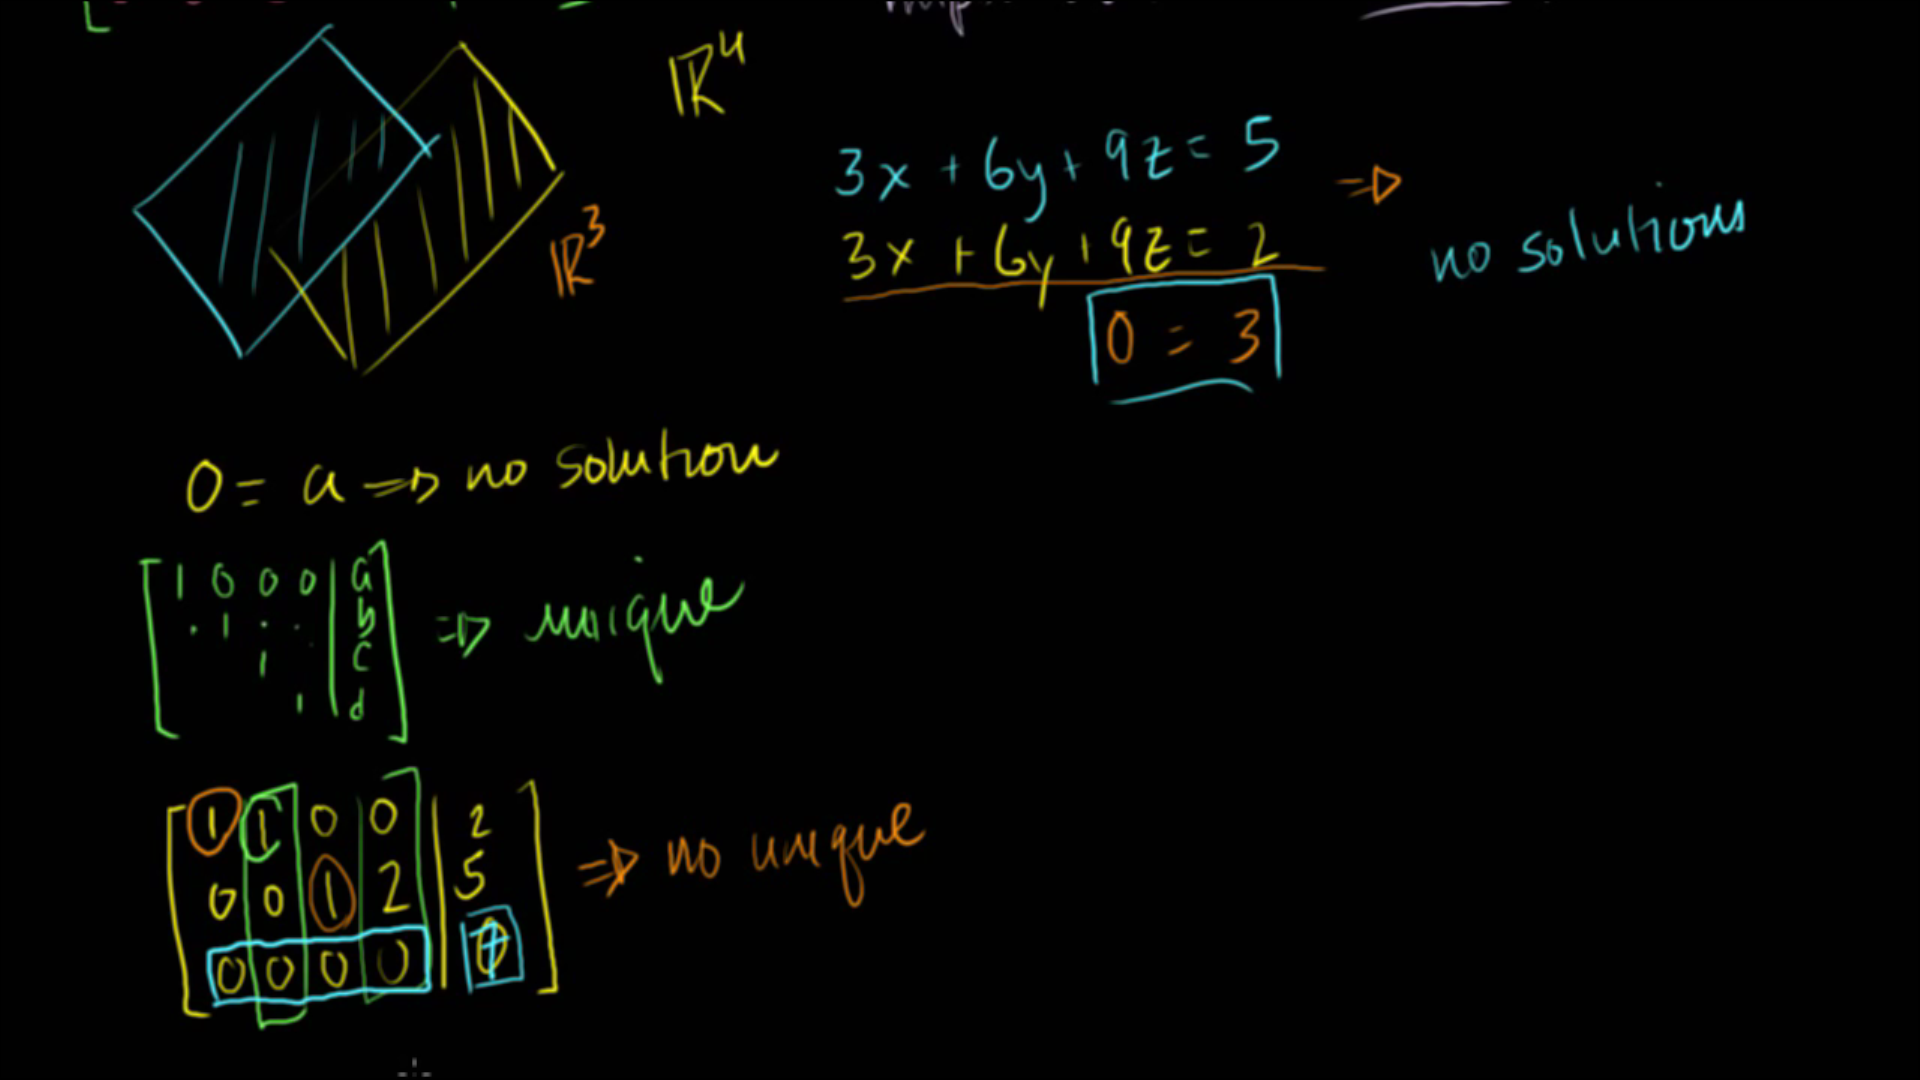 ℝ⁴
ℝ³
3x + 6y + 9z = 5 ⇒
3x + 6y + 9z = 2
no solutions
0 = 3
0 = a ⇒ no solution
1 0 0 0 | a
. 1 . . | b
1 | c
1 | d
⇒ unique
1 1 0 0 | 2
0 0 1 2 | 5
0 0 0 0 |
⇒ no unique